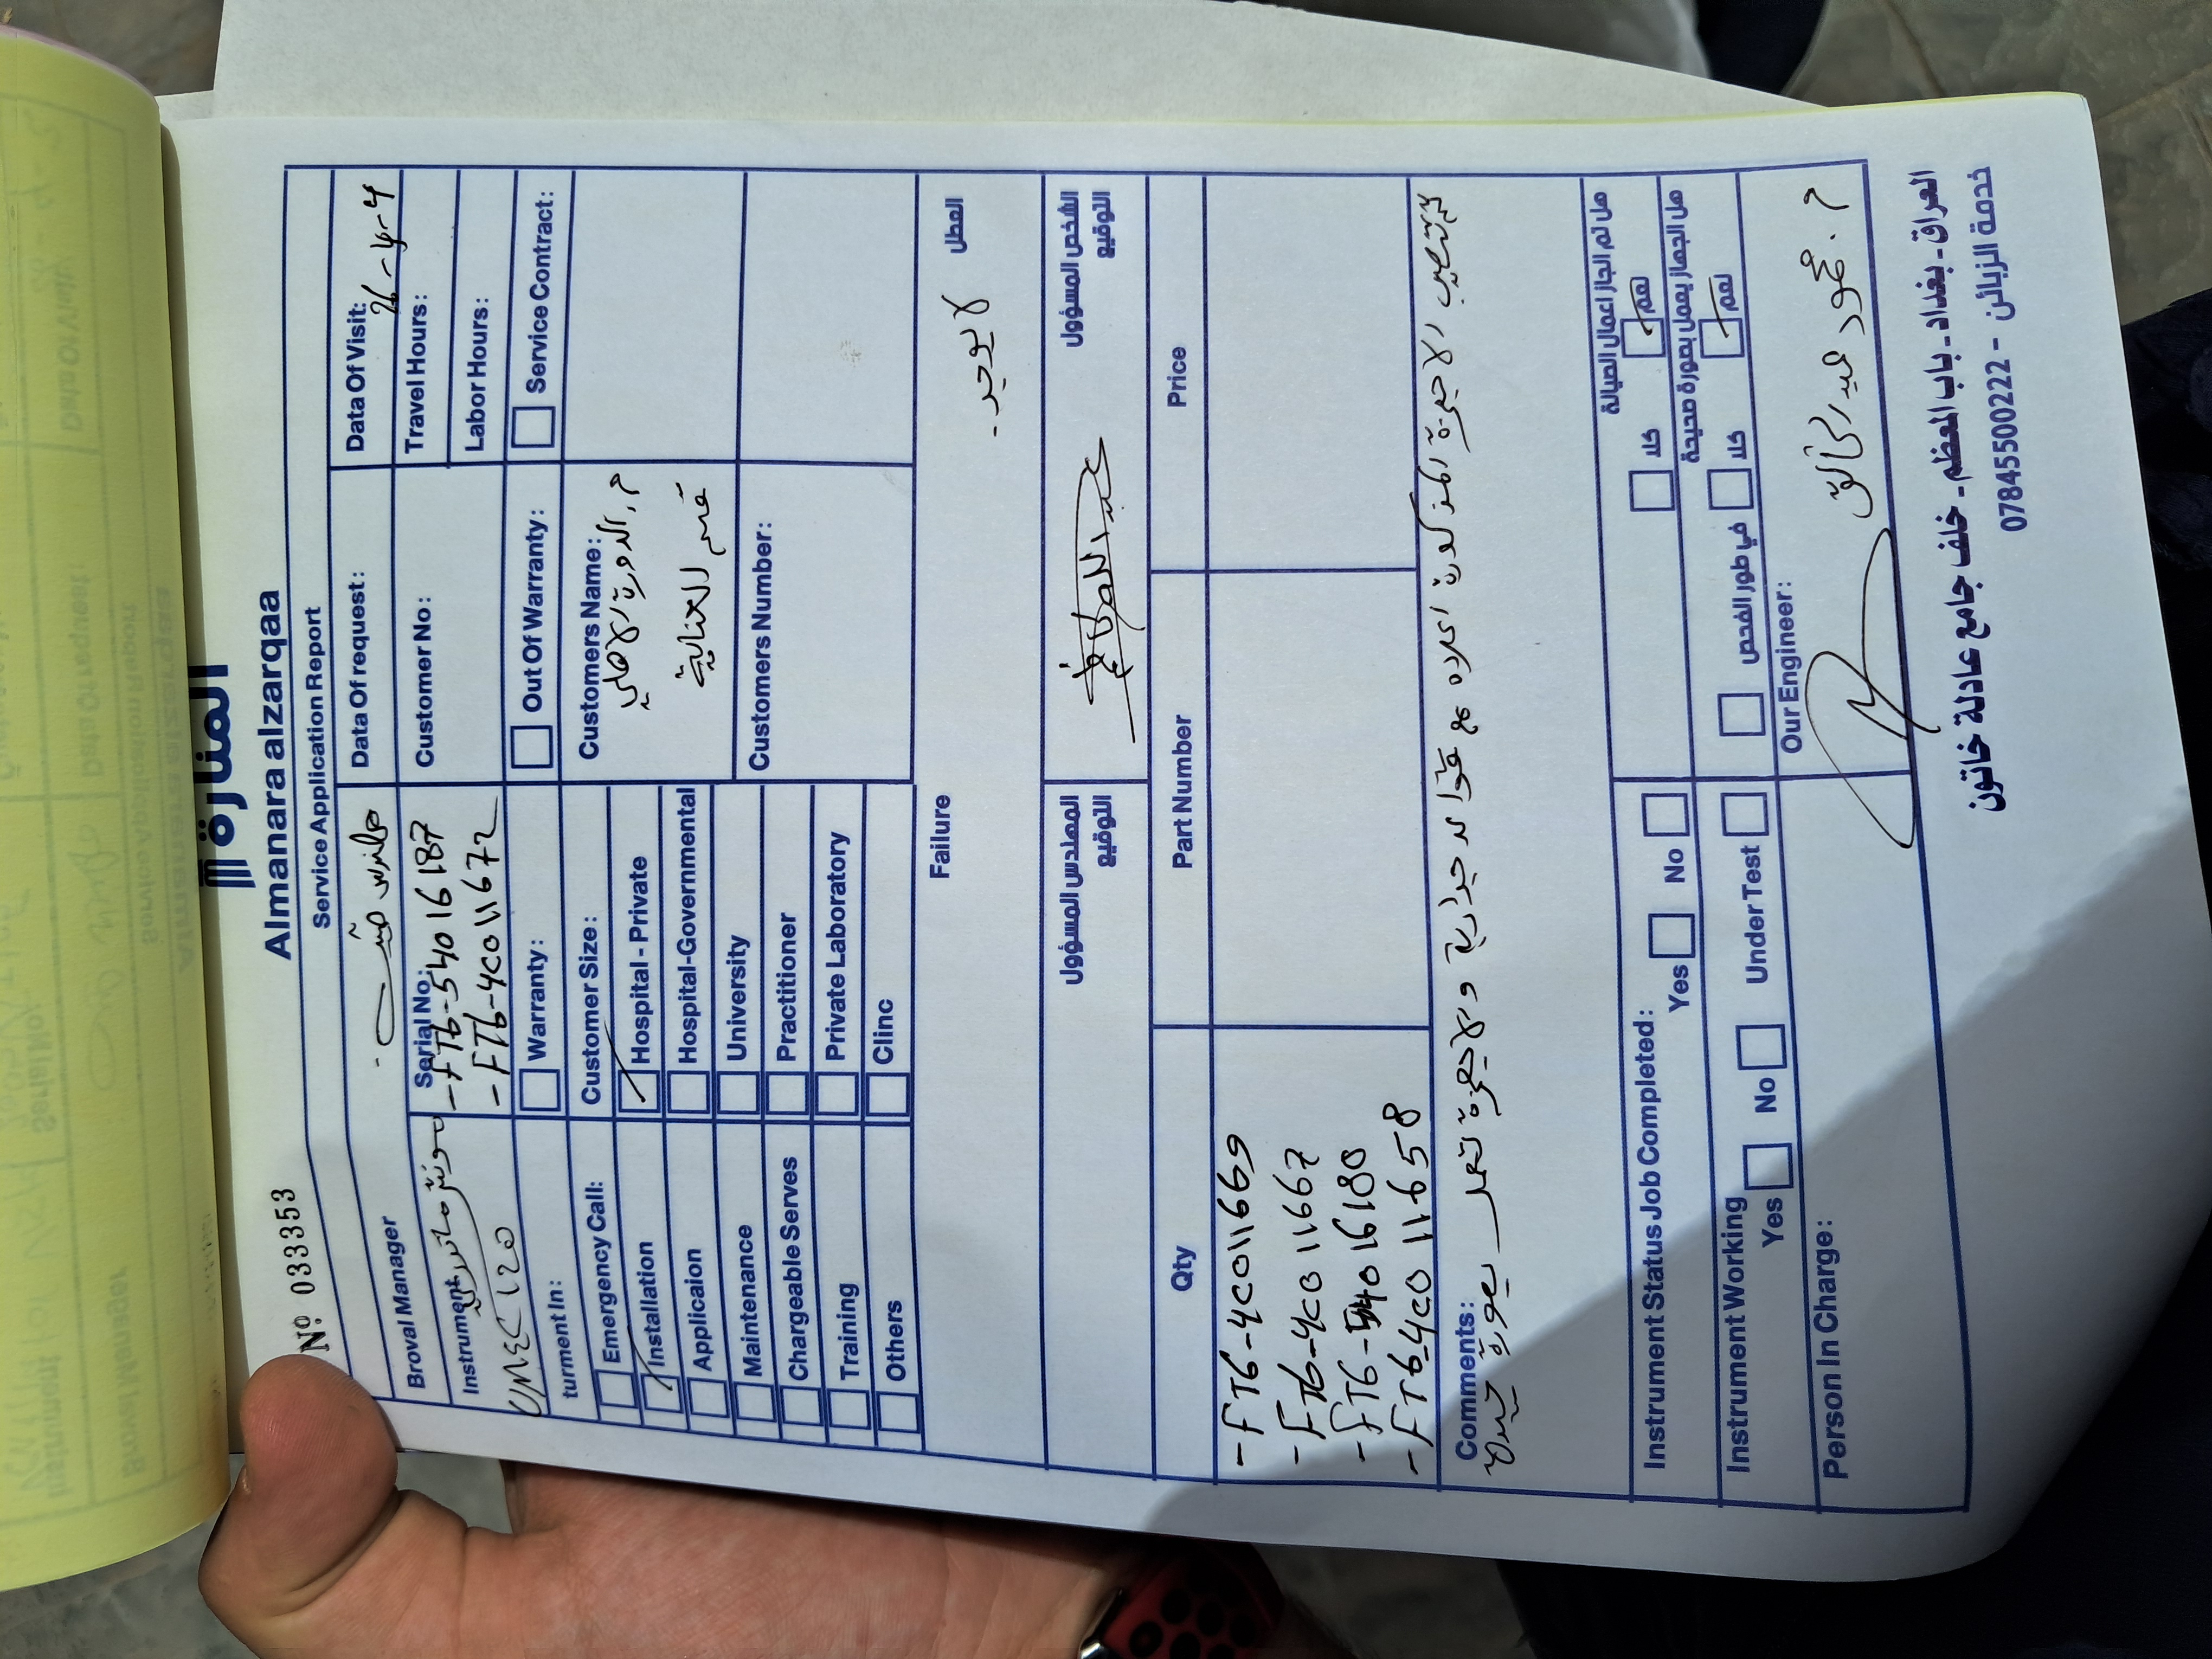 المنارة
Almanara alzarqaa
Nº 033353
Service Application Report
Broval Manager
Data Of request:
Data Of Visit:
26-4-4
Instrument
مونيتر
UMEC 120
Serial No:
- FT6-54016187
- FT6-4C011672
Customer No:
Travel Hours:
Labor Hours:
turment In:
Warranty:
Out Of Warranty:
Service Contract:
Emergency Call:
Installation
Applicaion
Maintenance
Chargeable Serves
Training
Others
Customer Size:
Hospital - Private
Hospital-Governmental
University
Practitioner
Private Laboratory
Clinc
Customers Name:
م. الدورة الاهلي
قسم العناية
Customers Number:
Failure
العطل
لا يوجد -
المهندس المسؤول
التوقيع
الشخص المسؤول
التوقيع
Qty
Part Number
Price
- FT6-4C011669
- FT6-4C011667
- FT6-54016180
- FT6-4C011658
Comments:
تم تنصيب الاجهزة المذكورة اعلاه مع قواعد جدارية والاجهزة تعمل بصورة
جيدة
Instrument Status Job Completed:
Yes
No
هل تم انجاز اعمال الصيانة
كلا
نعم
Instrument Working
Yes
No
Under Test
هل الجهاز يعمل بصورة صحيحة
في طور الفحص
كلا
نعم
Person In Charge:
Our Engineer:
م. محمود عبد الخالق
العراق - بغداد - باب المعظم - خلف جامع عادلة خاتون
خدمة الزبائن - 07845500222